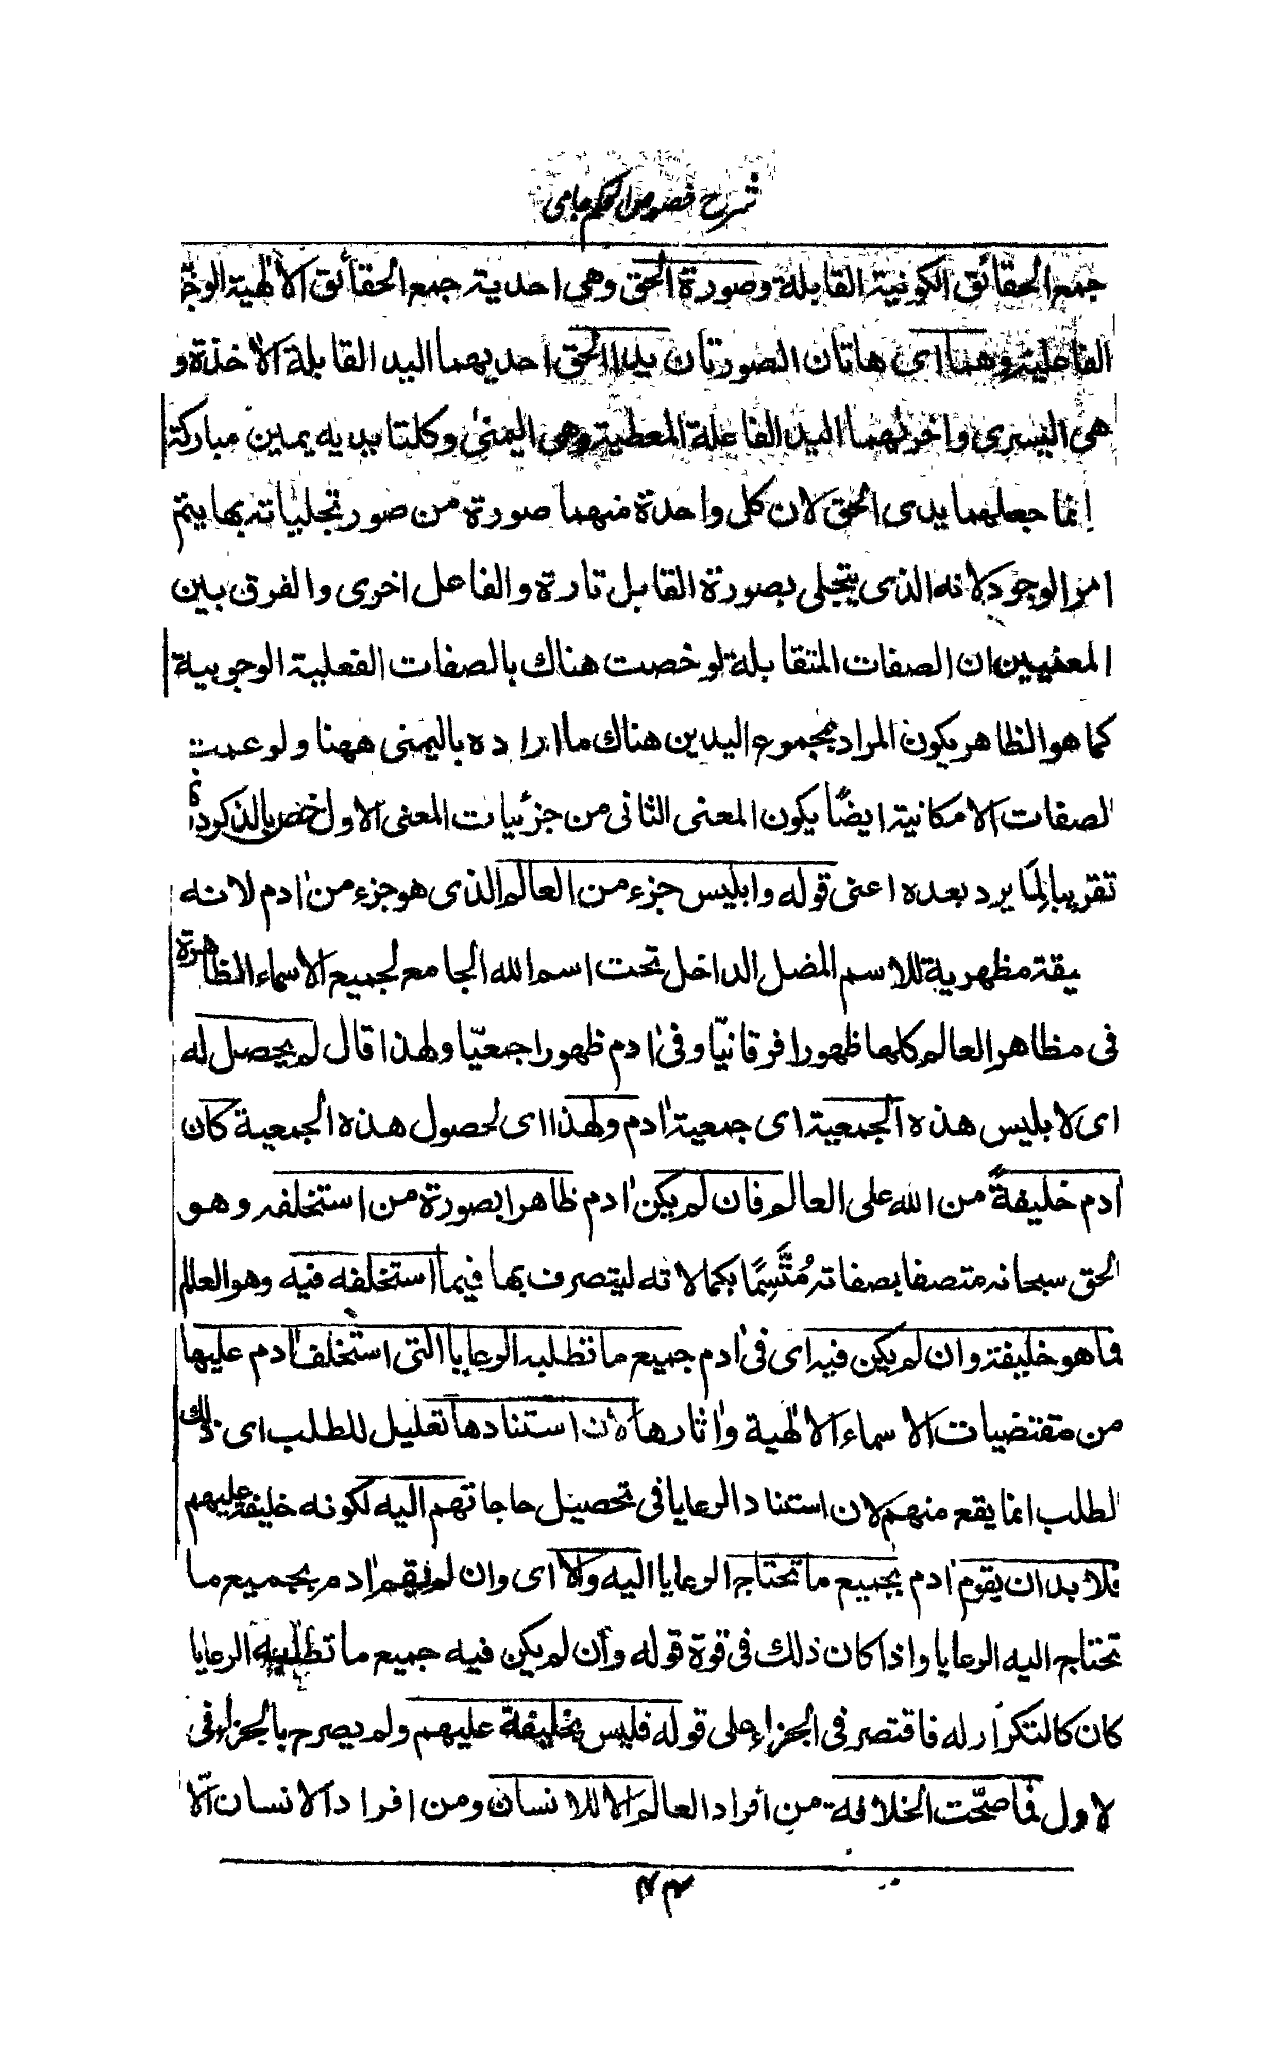 شرح فصوص الحكم جامى
جمع الحقائق الكونية القابلة وصورة الحق وهى احدية جمع الحقائق الالٰهية الوجو
الفاعلية وهما اى هاتان الصورتان يدا الحق احديهما اليد القابلة الاخذة و
هى اليسرى واخرٰهما اليد الفاعلة المعطية وهى اليمنىٰ وكلتا يديه يمين مباركة
انما جعلهما يدى الحق لان كل واحدة منهما صورة من صور تجلياته بها يتم
امر الوجود لانه الذى يتجلى بصورة القابل تارة والفاعل اخرى والفرق بين
المعنيين ان الصفات المتقابلة لو خصت هناك بالصفات الفعلية الوجوبية
كما هو الظاهر يكون المراد بمجموع اليدين هناك ما اراده باليمنى ههنا ولو عمت
لصفات الامكانية ايضًا يكون المعنى الثانى من جزئيات المعنى الاول خص بالذكر
تقريبا لِمَا يرد بعده اعنى قوله وابليس جزء من العالم الذى هو جزء من اٰدم لانه
يقة مظهرية للاسم المضل الداخل تحت اسم الله الجامع لجميع الاسماء الظاهرة
فى مظاهر العالم كلها ظهورا فرقانيّا وفى اٰدم ظهورا جمعيّا ولهذا قال لم يحصل له
اى لابليس هذه الجمعية اى جمعية اٰدم ولهذا اى لحصول هذه الجمعية كان
اٰدم خليفةً من الله على العالم فان لم يكن اٰدم ظاهرا بصورة من استخلفه وهو
الحق سبحانه متصفا بصفاته مُتَّسِمًا بكمالاته ليتصرف بها فيما استخلفه فيه وهو العالم
فما هو خليفة وان لم يكن فيه اى فى اٰدم جميع ما تطلبه الرعايا التى استخلف اٰدم عليها
من مقتضيات الاسماء الالٰهية واٰثارها لان استنادها تعليل للطلب اى ذلك
لطلب انما يقع منهم لان استناد الرعايا فى تحصيل حاجاتهم اليه لكونه خليفة عليهم
فلا بد ان يقوم اٰدم بجميع ما تحتاج الرعايا اليه والا اى وان لم يقم اٰدم بجميع ما
تحتاج اليه الرعايا واذا كان ذلك فى قوة قوله وان لم يكن فيه جميع ما تطلبه الرعايا
كان كالتكرار له فاقتصر فى الجزاء على قوله فليس بخليفة عليهم ولم يصرح بالجزاء فى
لاول فما صحّت الخلافة من أفراد العالم الا للانسان ومن افراد الانسان الّا